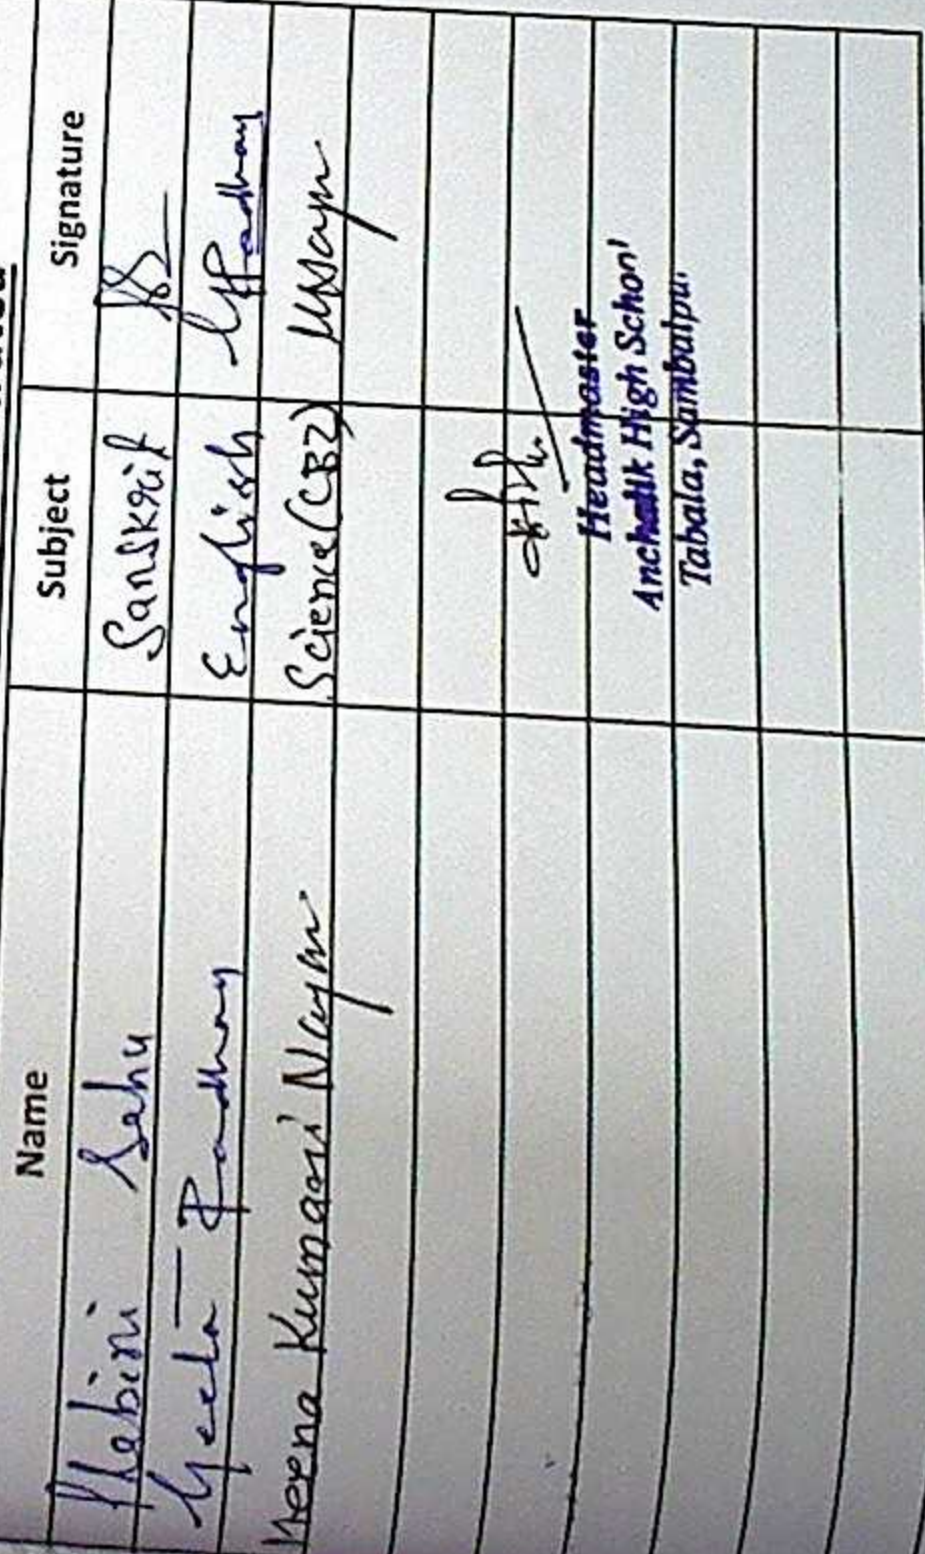 Name Subject Signature
Sahu Sanskrit
Geeta Pradhan English GPradhan
Meena Kumari Nayak Science (CBZ) MNayak
Headmaster
Anchalik High School
Tabala, Sambalpur